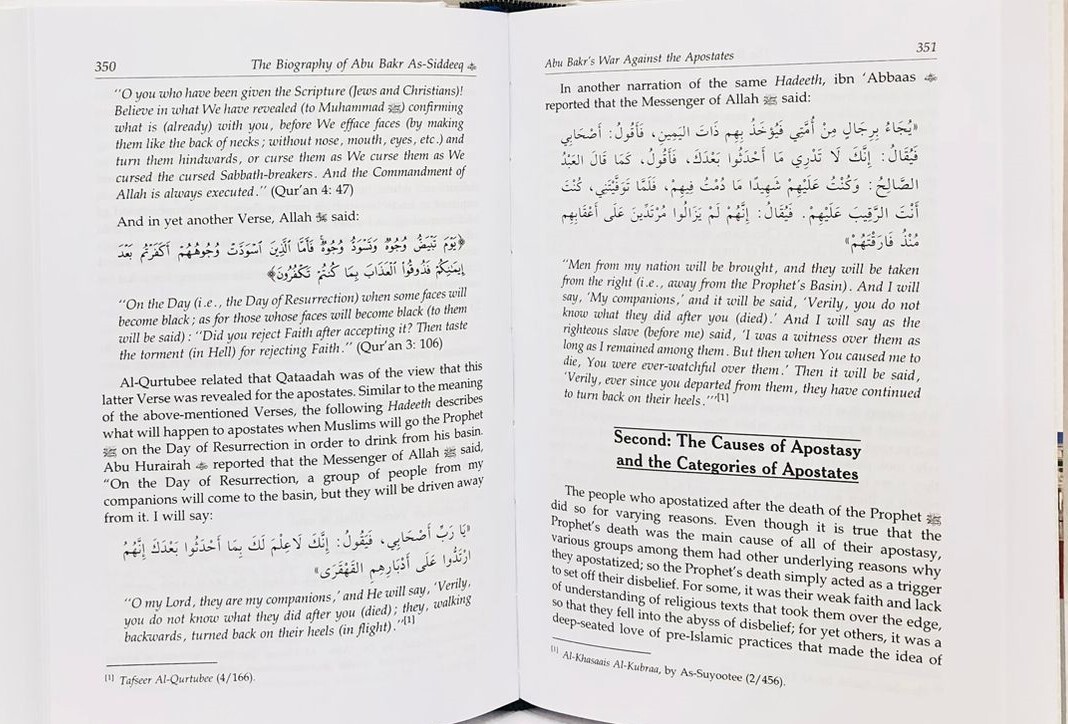 350 The Biography of Abu Bakr As-Siddeeq
"O you who have been given the Scripture (Jews and Christians)!
Believe in what We have revealed (to Muhammad ﷺ) confirming
what is (already) with you, before We efface faces (by making
them like the back of necks; without nose, mouth, eyes, etc.) and
turn them hindwards, or curse them as We cursed them as We
cursed the cursed Sabbath-breakers. And the Commandment of
Allah is always executed." (Qur'an 4: 47)
And in yet another Verse, Allah said:
﴿يَوْمَ تَبْيَضُّ وُجُوهٌ وَتَسْوَدُّ وُجُوهٌ فَأَمَّا الَّذِينَ اسْوَدَّتْ وُجُوهُهُمْ أَكَفَرْتُم بَعْدَ
إِيمَانِكُمْ فَذُوقُوا الْعَذَابَ بِمَا كُنتُمْ تَكْفُرُونَ﴾
"On the Day (i.e., the Day of Resurrection) when some faces will
become black; as for those whose faces will become black (to them
will be said): "Did you reject Faith after accepting it? Then taste
the torment (in Hell) for rejecting Faith." (Qur'an 3: 106)
Al-Qurtubee related that Qataadah was of the view that this
latter Verse was revealed for the apostates. Similar to the meaning
of the above-mentioned Verses, the following Hadeeth describes
what will happen to apostates when Muslims will go the Prophet
ﷺ on the Day of Resurrection in order to drink from his basin.
Abu Hurairah reported that the Messenger of Allah ﷺ said,
"On the Day of Resurrection, a group of people from my
companions will come to the basin, but they will be driven away
from it. I will say:
«يَا رَبِّ أَصْحَابِي، فَيَقُولُ: إِنَّكَ لَاعِلْمَ لَكَ بِمَا أَحْدَثُوا بَعْدَكَ إِنَّهُمُ
ارْتَدُّوا عَلَى أَدْبَارِهِم القَهْقَرَى»
"O my Lord, they are my companions,' and He will say, 'Verily,
you do not know what they did after you (died); they, walking
backwards, turned back on their heels (in flight).'"[1]
[1] Tafseer Al-Qurtubee (4/166).
Abu Bakr's War Against the Apostates 351
In another narration of the same Hadeeth, ibn 'Abbaas
reported that the Messenger of Allah ﷺ said:
«يُجَاءُ بِرِجَالٍ مِنْ أُمَّتِي فَيُؤْخَذُ بِهِم ذَاتَ اليَمِينِ، فَأَقُولُ: أَصْحَابِي
فَيُقَالُ: إِنَّكَ لَا تَدْرِي مَا أَحْدَثُوا بَعْدَكَ، فَأَقُولُ، كَمَا قَالَ العَبْدُ
الصَّالِحُ: وَكُنْتُ عَلَيْهِمْ شَهِيدًا مَا دُمْتُ فِيهِمْ، فَلَمَّا تَوَفَّيْتَنِي، كُنْتَ
أَنْتَ الرَّقِيبَ عَلَيْهِمْ. فَيُقَالُ: إِنَّهُمْ لَمْ يَزَالُوا مُرْتَدِّينَ عَلَى أَعْقَابِهِم
مُنْذُ فَارَقْتَهُمْ»
"Men from my nation will be brought, and they will be taken
from the right (i.e., away from the Prophet's Basin). And I will
say, 'My companions,' and it will be said, 'Verily, you do not
know what they did after you (died).' And I will say as the
righteous slave (before me) said, 'I was a witness over them as
long as I remained among them. But then when You caused me to
die, You were ever-watchful over them.' Then it will be said,
'Verily, ever since you departed from them, they have continued
to turn back on their heels.'"[1]
Second: The Causes of Apostasy
and the Categories of Apostates
The people who apostatized after the death of the Prophet ﷺ
did so for varying reasons. Even though it is true that the
Prophet's death was the main cause of all of their apostasy,
various groups among them had other underlying reasons why
they apostatized; so the Prophet's death simply acted as a trigger
to set off their disbelief. For some, it was their weak faith and lack
of understanding of religious texts that took them over the edge,
so that they fell into the abyss of disbelief; for yet others, it was a
deep-seated love of pre-Islamic practices that made the idea of
[1] Al-Khasaais Al-Kubraa, by As-Suyootee (2/456).